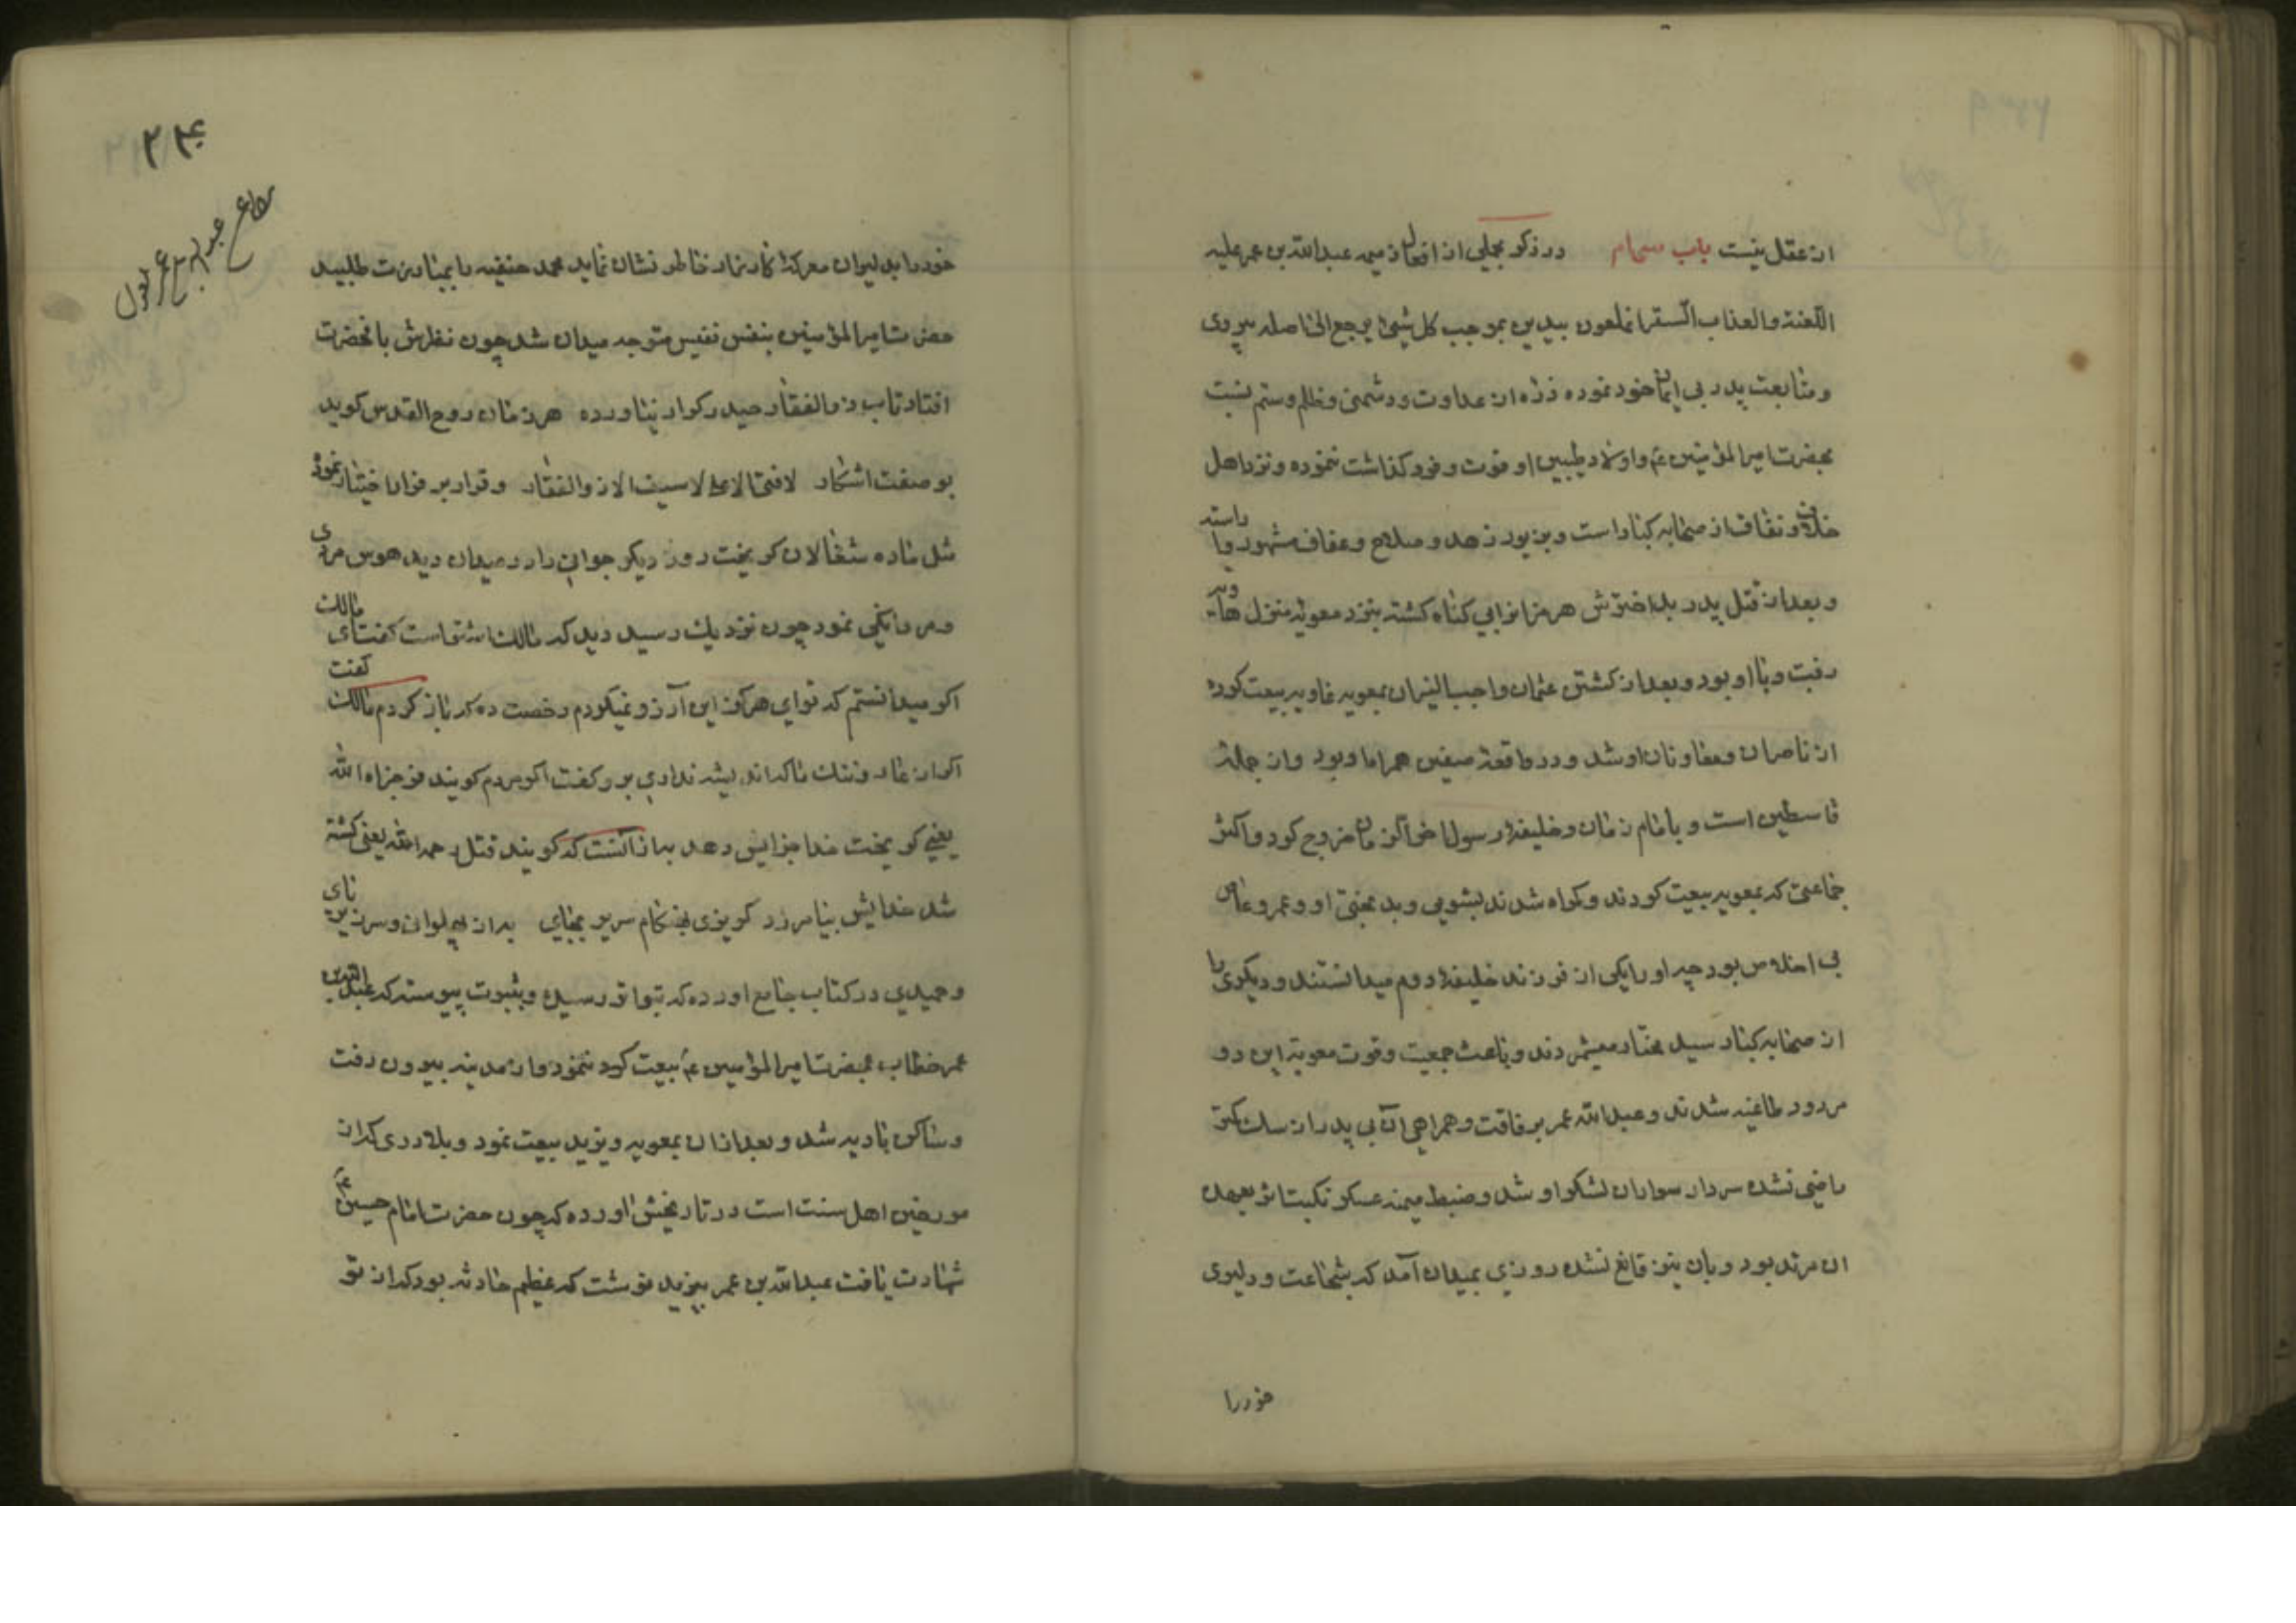 از عقل نیست باب سی‌ام در ذکر مجملی از افعال ذمیمه عبدالله بن عمر علیه
اللعنة والعذاب السقر ان ملعون بیدین بموجب کل شیئ یرجع الی اصله پیروی
و متابعت پدر بی ایمان خود نموده ذره از عداوت و دشمنی و ظلم و ستم نسبت
بحضرت امیرالمؤمنین ع و اولاد طیبین او فوت و فرو گذاشت ننموده و نزد اهل
خلاف و نفاق از صحابه کبار است و بزیور زهد و صلاح و عفاف مشهور و اراسته
و بعد از قتل پدر بداخترش هرمزان را بی گناه کشته بنزد معویه منزل هاویه
رفت و با او بود و بعد از کشتن عثمان واجب النیران بمعویه غاویه بیعت کرده
از ناصران و معاونان او شد و در واقعهٔ صفین همراه او بود و از جملهٔ
قاسطین است و بامام زمان و خلیفهٔ رسول اخر الزمان خروج کرد و اکثر
جماعتی که بمعویه بیعت کردند و گمراه شدند بشومی و بدبختی او و عمرو عاص
بی اخلاص بود چه او را یکی از فرزند خلیفهٔ دوم میدانستند و دیگری را
از صحابه کبار سید مختار میشمردند و باعث جمعیت و قوت معویه این دو
مردود طاغیه شدند و عبدالله عمر برفاقت و همراهی ان بی پدر از سک کمتر
راضی نشده سردار سواران لشکر او شد و ضبط میمنه عسکر نکبت اثر بعهده
ان مرتد بود و بان نیز قانع نشده روزی بمیدان آمد که شجاعت و دلیری
خود را
۲۴۰
عبدالله بن عمر
خود را بدلیران معرکهٔ کارزار خاطر نشان نماید محمد حنفیه را بمبارزت طلبید
حضرت امیرالمؤمنین بنفس نفیس متوجه میدان شد چون نظرش بانحضرت
افتاد تاب ذوالفقار حیدر کرار نیاورده هر زمان روح القدس کوید
بوصفت اشکار لافتی الا علی لا سیف الا ذوالفقار و قرار بر فرار اختیار نموده
مثل ماده شغالان کریخت روز دیکر جوانی را در میدان دید هوس مردی
و مردانکی نمود چون نزدیک رسید دید که مالک اشتر است کفت ای مالک
اکر میدانستم که توای هرکز این آرزو نمیکردم رخصت ده که باز کردم مالک کفت
اکر از عار و ننک ناکه اندیشه نداری برو کفت اکر مردم کویند فر جزاه الله
یعنی کریخت خدا جزایش دهد به از انست که کویند قتل رحمه الله یعنی کشته
شد خدایش بیامرزد کریزی بهنکام سر بر بجای به از پهلوانی و سر زیر پای
و حمیدی در کتاب جامع اورده که بتواتر رسیده و بثبوت پیوسته که عبدالله بن
عمر خطاب بحضرت امیرالمؤمنین ع بیعت ننمود و از مدینه بیرون رفت
و ساکن بادیه شد و بعد از ان بمعویه و یزید بیعت نمود و بلاذری که از
مورخین اهل سنت است در تاریخش اورده که چون حضرت امام حسین ع
شهادت یافت عبدالله بن عمر بیزید نوشت که عظیم حادثه بود که از تو